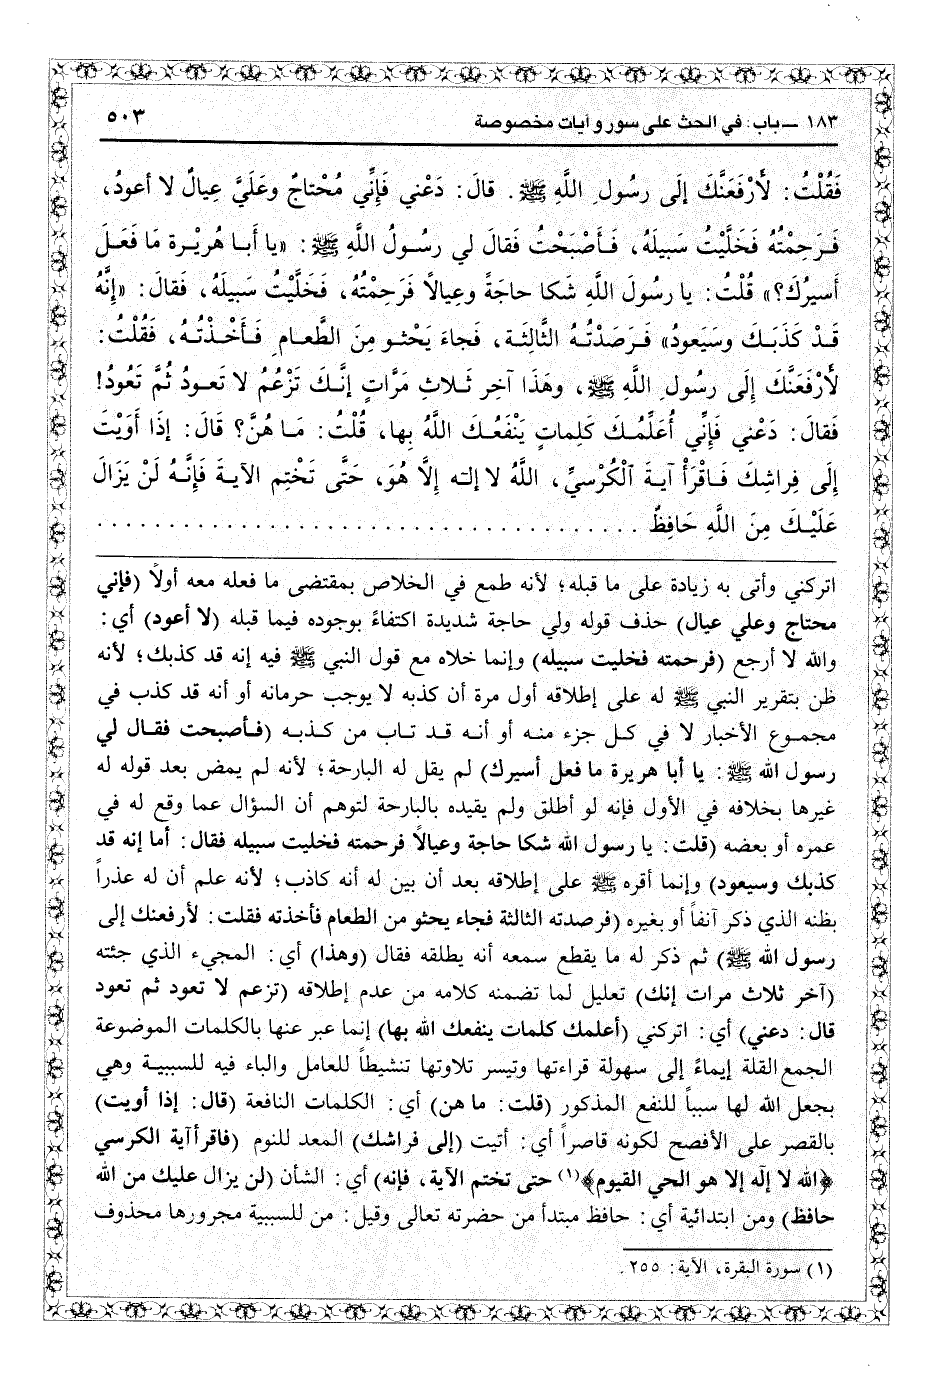 ١٨٣ - باب: في الحث على سور وآيات مخصوصة ٥٠٣
فَقُلْتُ: لَأَرْفَعَنَّكَ إِلَى رسُولِ اللَّهِ ﷺ. قالَ: دَعْني فَإِنِّي مُحْتاجٌ وعَلَيَّ عِيالٌ لا أعودُ،
فَرَحِمْتُهُ فَخَلَّيْتُ سَبِيلَهُ، فَأَصْبَحْتُ فَقالَ لي رسُولُ اللَّهِ ﷺ: «يا أَبا هُرَيْرة مَا فَعَلَ
أَسيرُكَ؟» قُلْتُ: يا رسُولَ اللَّهِ شَكا حاجَةً وعِيالاً فَرَحِمْتُهُ، فَخَلَّيْتُ سَبِيلَهُ، فَقالَ: «إِنَّهُ
قَدْ كَذَبَكَ وسَيَعودُ» فَرَصَدْتُهُ الثَّالِثَة، فَجاءَ يَحْثو مِنَ الطَّعامِ فَأَخْذتُهُ، فَقُلْتُ:
لَأَرْفَعَنَّكَ إِلَى رسُولِ اللَّهِ ﷺ، وهَذَا آخِر ثَلاثِ مَرَّاتٍ إِنَّكَ تَزْعُمُ لا تَعودُ ثُمَّ تَعُودُ!
فَقالَ: دَعْني فَإِنِّي أُعَلِّمُكَ كَلِماتٍ يَنْفَعُكَ اللَّهُ بِها، قُلْتُ: مَا هُنَّ؟ قَالَ: إِذَا أَوَيْتَ
إِلَى فِراشِكَ فَاقْرَأْ آيةَ الْكُرْسِيِّ، اللَّهُ لا إلٰه إِلَّا هُوَ، حَتَّى تَخْتِم الآيةَ فَإِنَّهُ لَنْ يَزَالَ
عَلَيْكَ مِنَ اللَّهِ حَافِظٌ ......................................
اتركني وأتى به زيادة على ما قبله؛ لأنه طمع في الخلاص بمقتضى ما فعله معه أولاً (فإني
محتاج وعلي عيال) حذف قوله ولي حاجة شديدة اكتفاءً بوجوده فيما قبله (لا أعود) أي:
والله لا أرجع (فرحمته فخليت سبيله) وإنما خلاه مع قول النبي ﷺ فيه إنه قد كذبك؛ لأنه
ظن بتقرير النبي ﷺ له على إطلاقه أول مرة أن كذبه لا يوجب حرمانه أو أنه قد كذب في
مجموع الأخبار لا في كل جزء منه أو أنه قد تاب من كذبه (فأصبحت فقال لي
رسول الله ﷺ: يا أبا هريرة ما فعل أسيرك) لم يقل له البارحة؛ لأنه لم يمض بعد قوله له
غيرها بخلافه في الأول فإنه لو أطلق ولم يقيده بالبارحة لتوهم أن السؤال عما وقع له في
عمره أو بعضه (قلت: يا رسول الله شكا حاجة وعيالاً فرحمته فخليت سبيله فقال: أما إنه قد
كذبك وسيعود) وإنما أقره ﷺ على إطلاقه بعد أن بين له أنه كاذب؛ لأنه علم أن له عذراً
بظنه الذي ذكر آنفاً أو بغيره (فرصدته الثالثة فجاء يحثو من الطعام فأخذته فقلت: لأرفعنك إلى
رسول الله ﷺ) ثم ذكر له ما يقطع سمعه أنه يطلقه فقال (وهذا) أي: المجيء الذي جئته
(آخر ثلاث مرات إنك) تعليل لما تضمنه كلامه من عدم إطلاقه (تزعم لا تعود ثم تعود
قال: دعني) أي: اتركني (أعلمك كلمات ينفعك الله بها) إنما عبر عنها بالكلمات الموضوعة
الجمع القلة إيماءً إلى سهولة قراءتها وتيسر تلاوتها تنشيطاً للعامل والباء فيه للسببية وهي
بجعل الله لها سبباً للنفع المذكور (قلت: ما هن) أي: الكلمات النافعة (قال: إذا أويت)
بالقصر على الأفصح لكونه قاصراً أي: أتيت (إلى فراشك) المعد للنوم (فاقرأ آية الكرسي
﴿الله لا إلٰه إلا هو الحي القيوم﴾(١) حتى تختم الآية، فإنه) أي: الشأن (لن يزال عليك من الله
حافظ) ومن ابتدائية أي: حافظ مبتدأ من حضرته تعالى وقيل: من للسببية مجرورها محذوف
(١) سورة البقرة، الآية: ٢٥٥.